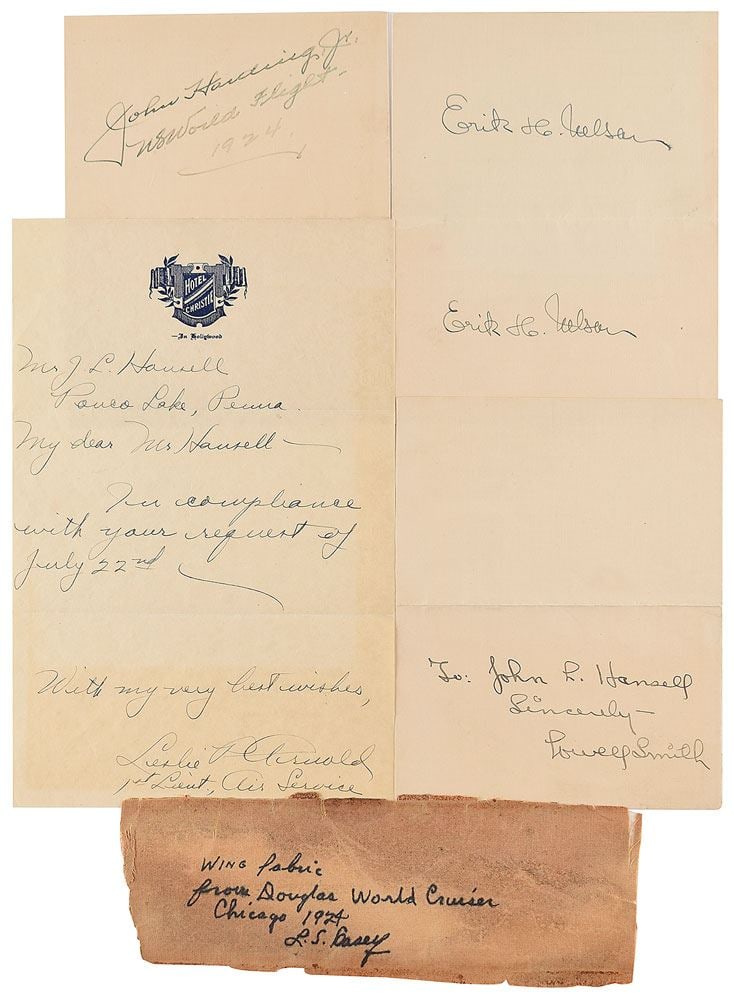 John Harding, Jr.
World Flight-
1924.
Erik H. Nelson
Erik H. Nelson
HOTEL
CHRISTIE
-In Hollywood
Mr J. L. Hansell
Poneo Lake, Penna.
My dear Mr Hansell-
In compliance
with your request of
July 22nd
With my very best wishes,
Leslie P Arnold
1st Lieut, Air Service
To: John L. Hansell
Sincerely-
Lowell Smith
WING fabric
from Douglas World Cruiser
Chicago 1924
L.S. Casey